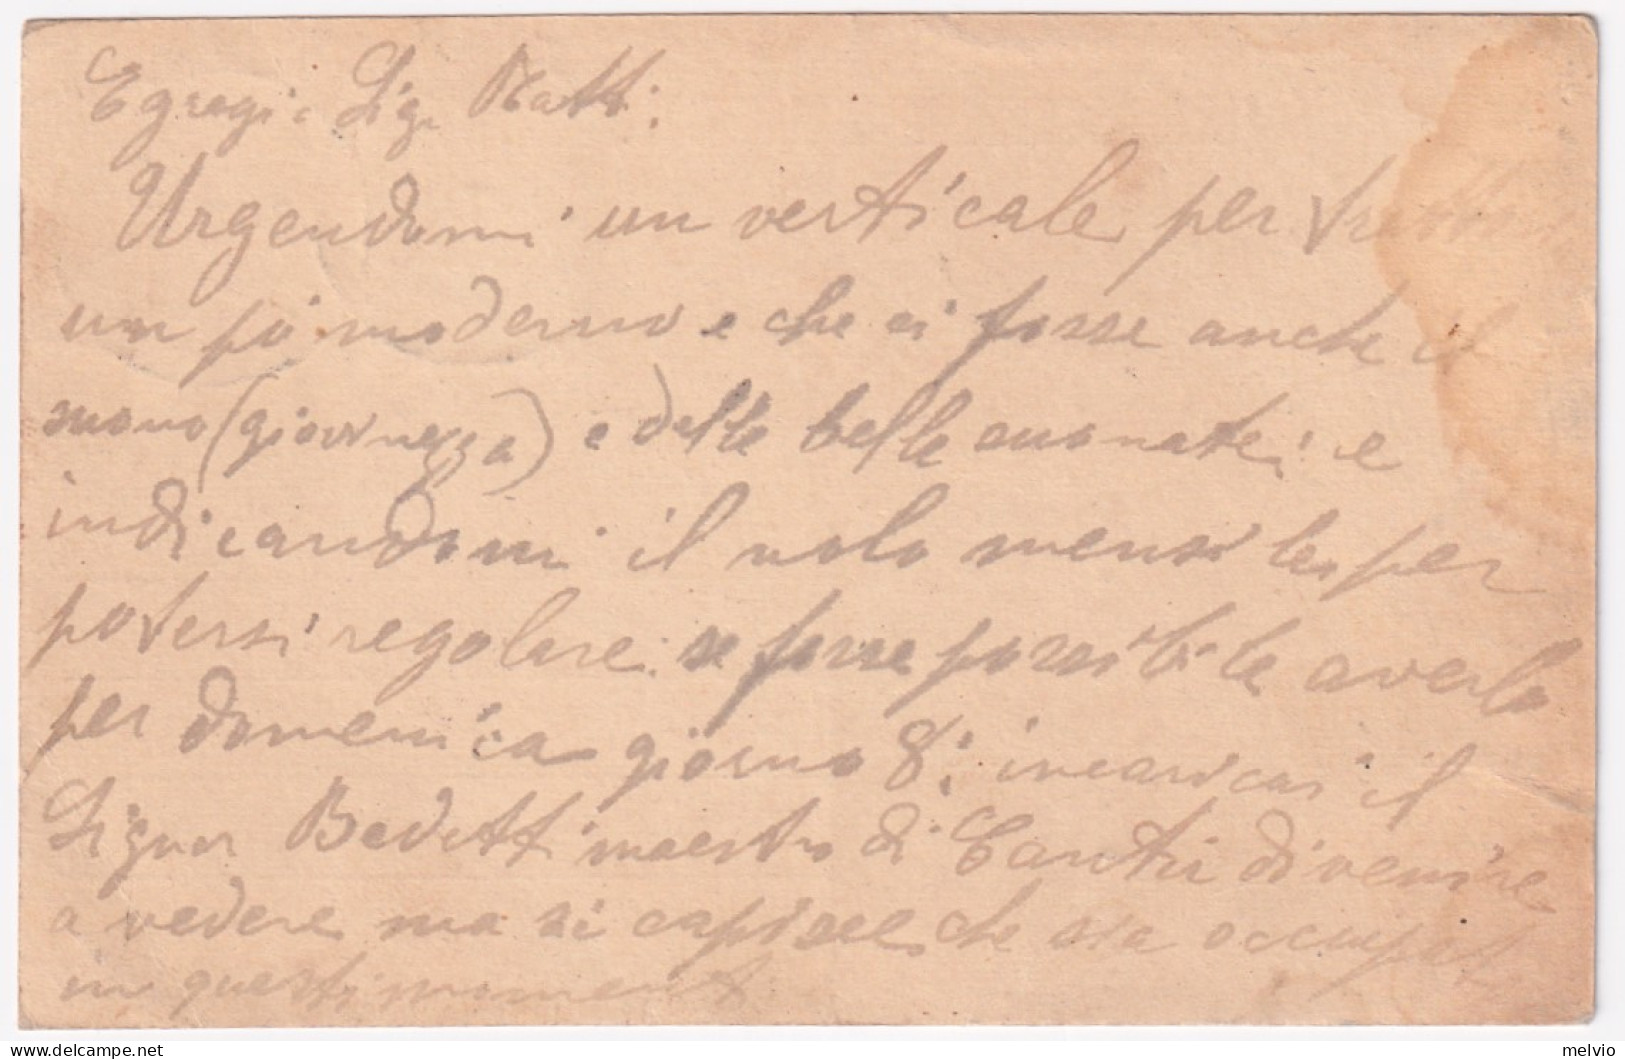 Egregio Sig. Matti.
Urgendomi un verticale per
un pò moderno e che ci fosse anche il
suono (giovinezza) e delle belle suonate; e
indicandomi il nolo mensile, per
potersi regolare; se fosse possibile averlo
per domenica giorno 8; incaricai il
Signor Bedetti maestro di Cantu di venire
a vedere ma si capisce, che sia occupato
in questi moment
melvio